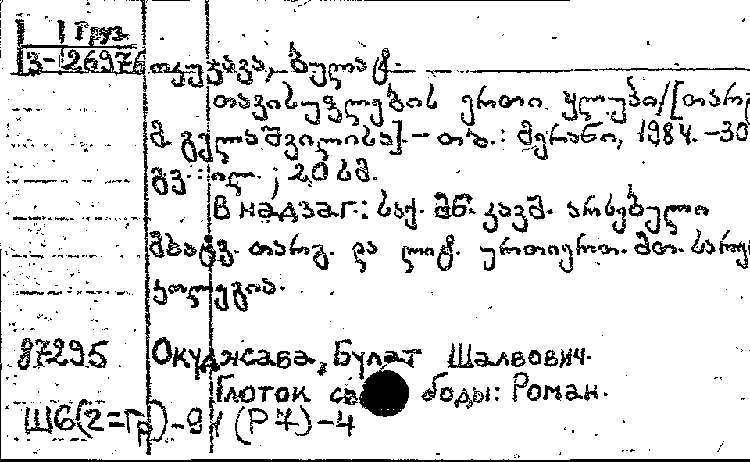 1 Груз.
3-26976 ოკუჯავა, ბულატ.
თავისუფლების ერთი ყლუპი/[თარგ
მ. გულაშვილისა].– თბ.: მერანი, 1984.–30
გვ.: ილ. ; 20 სმ.
В надзаг.: საქ. მწ. კავშ. არსებული
მხატვ. თარგ. და ლიტ. ურთიერთ. მთ. სარედ
კოლეგია.
87295 Окуджава, Булат Шалвович.
Глоток св боды: Роман.
Ш6(2=Гр)-91(Р7)-4